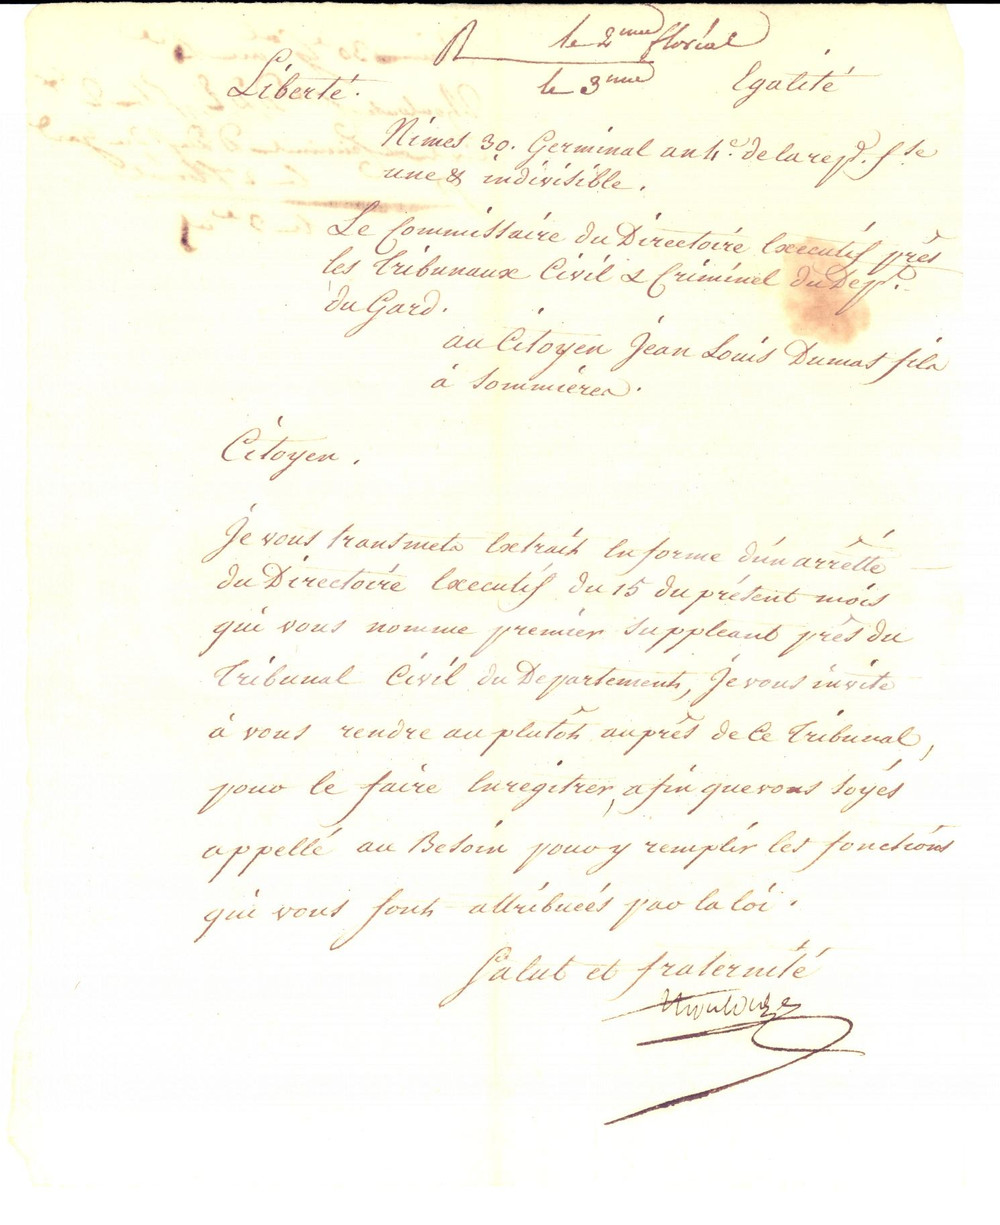 R le 2me floréal
le 3me
Liberté. Egalité
Nimes 30. Germinal an 4e. de la rep. fse
une & indivisible.
Le Commissaire du Directoire Executif près
les Tribunaux Civil & Criminel du Dept.
du Gard.
au Citoyen Jean Louis Dumas fils
à Sommieres.
Citoyen.
Je vous transmets Extrait en forme d'un arrêtté
du Directoire Executif du 15 du présent mois
qui vous nomme premier suppleant près du
Tribunal Civil du Departement, Je vous invite
à vous rendre au plutôt auprès de Ce Tribunal,
pour le faire Enregitrer, afin que vous soyés
appellé au Besoin pour y remplir les fonctions
qui vous sont attribuées par la loi.
Salut et fraternité